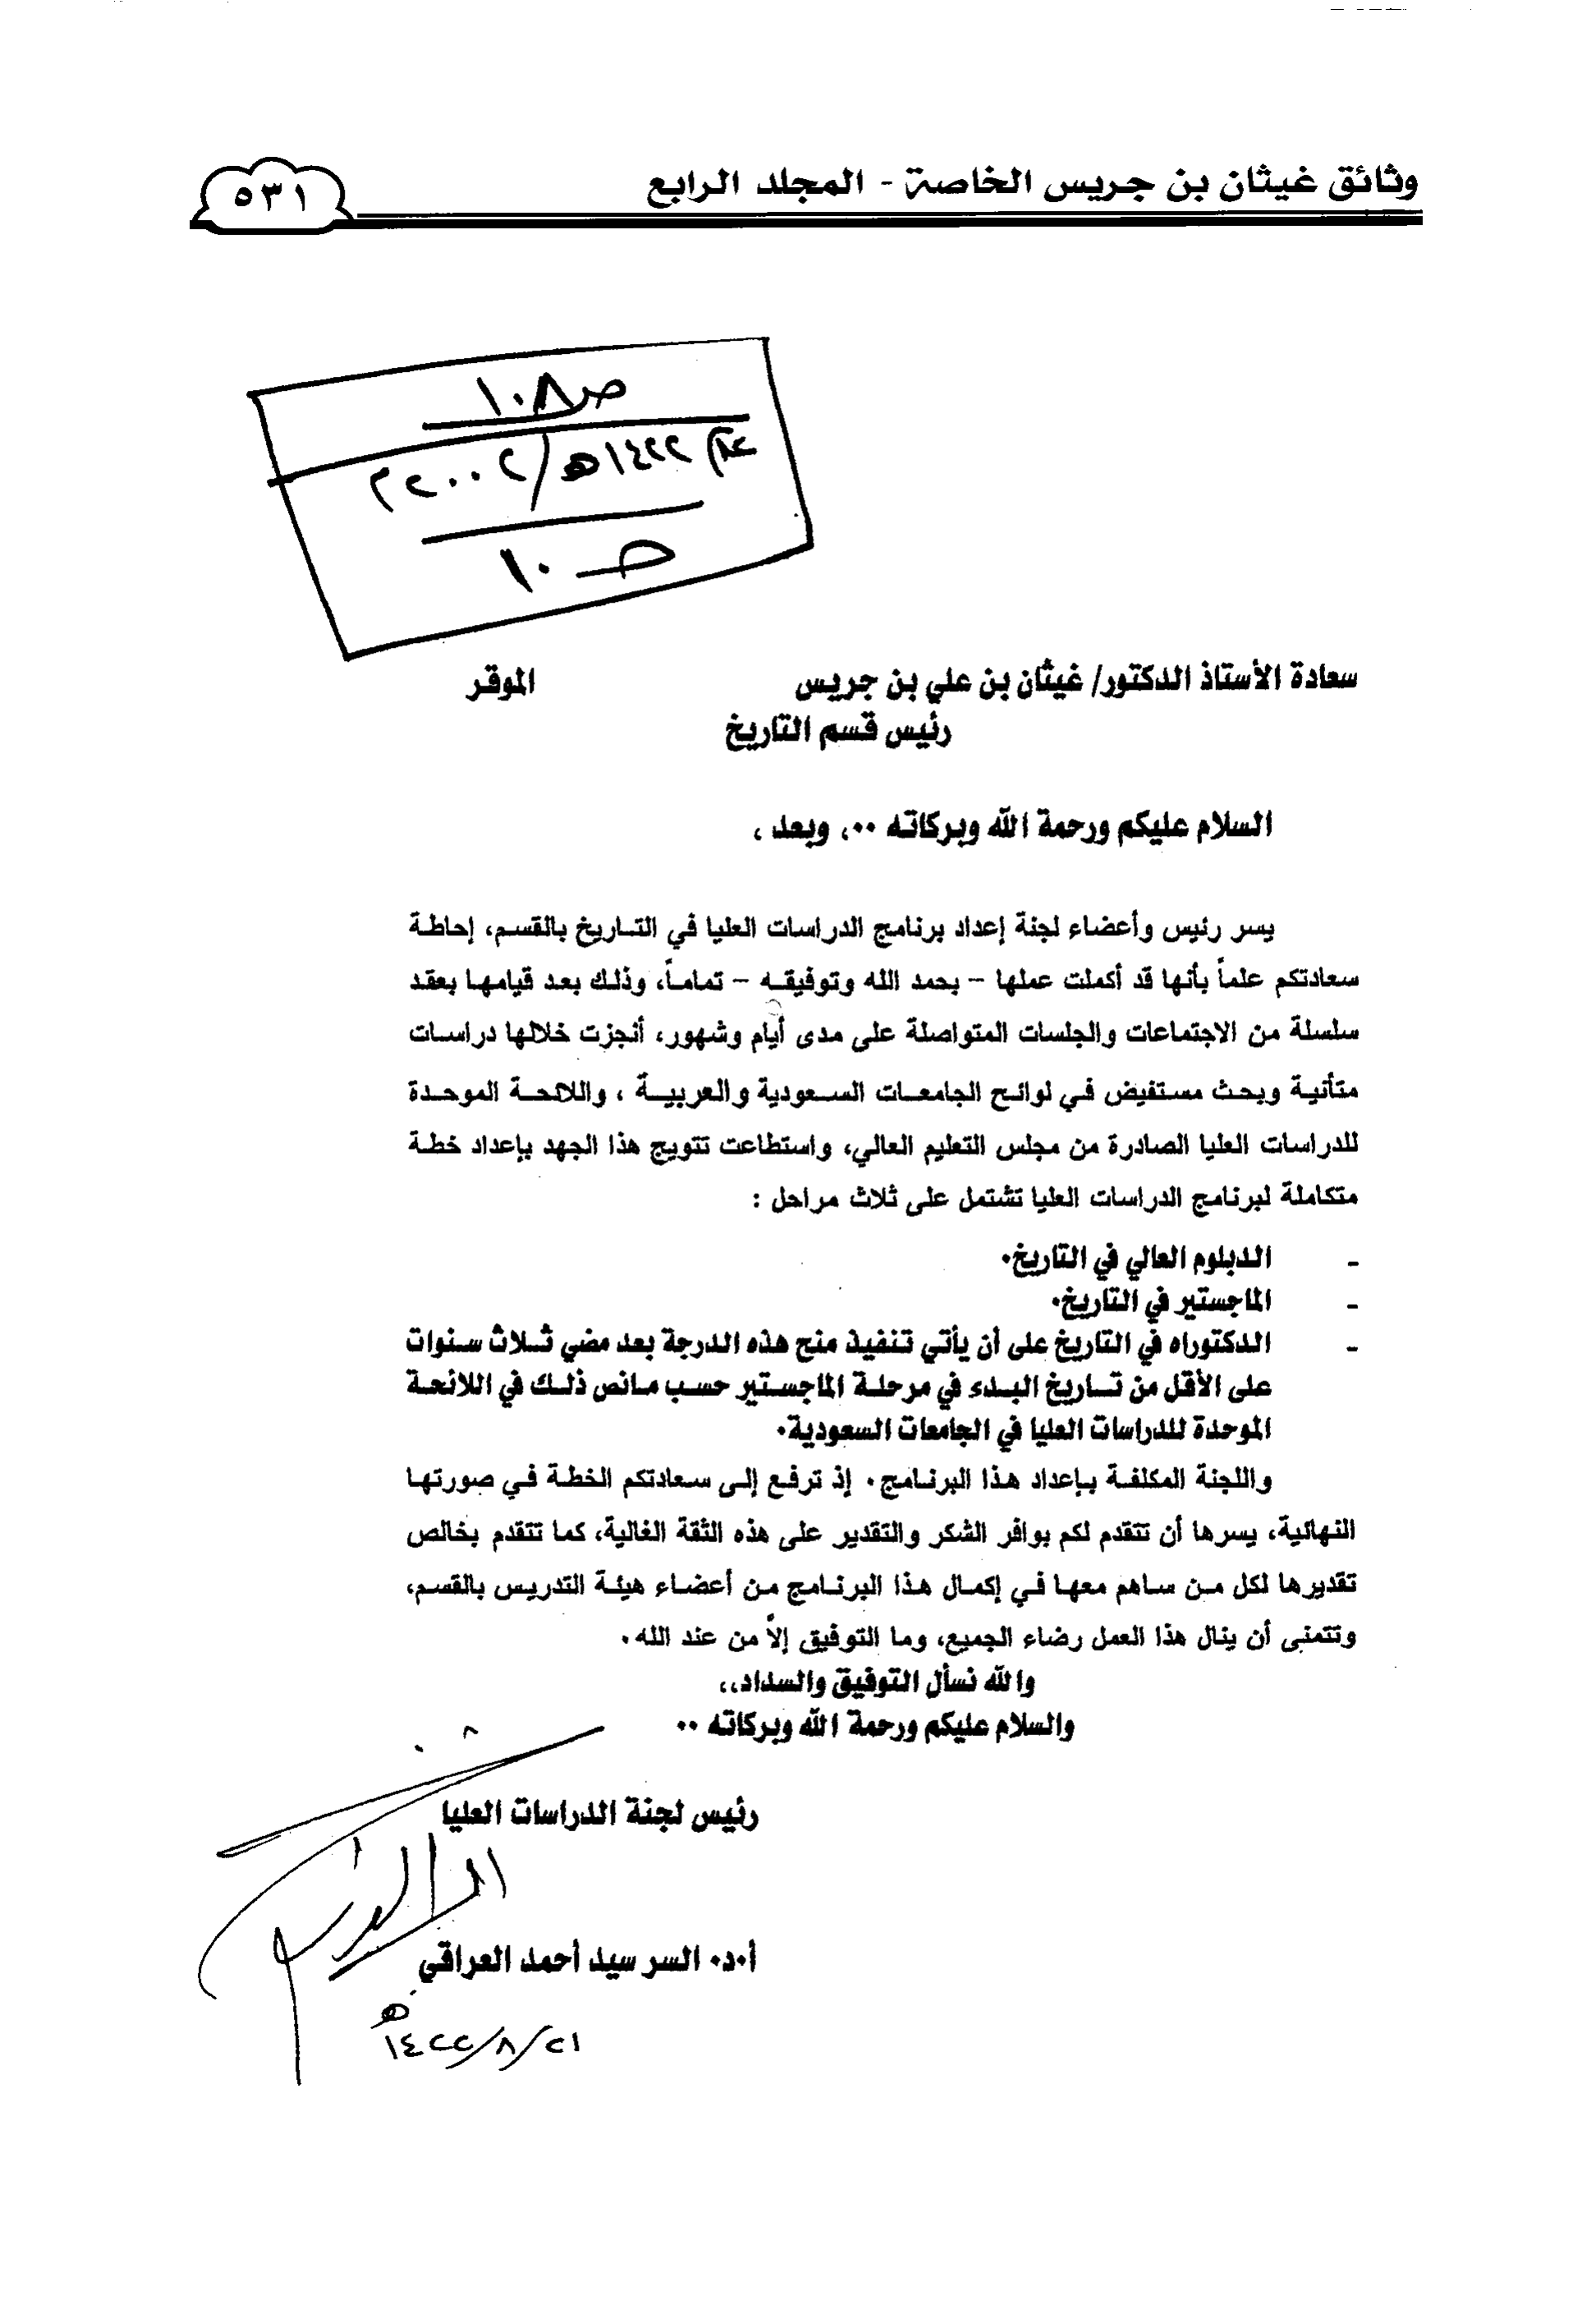 وثائق غيثان بن جريس الخاصة - المجلد الرابع
٥٣١
ص١٠٨
عام ١٤٢٢هـ/٢٠٠٢م
١٠
سعادة الأستاذ الدكتور/ غيثان بن علي بن جريس الموقر
رئيس قسم التاريخ
السلام عليكم ورحمة الله وبركاته ٠٠، وبعد ،
يسر رئيس وأعضاء لجنة إعداد برنامج الدراسات العليا في التاريخ بالقسم، إحاطة
سعادتكم علماً بأنها قد أكملت عملها – بحمد الله وتوفيقه – تماماً، وذلك بعد قيامها بعقد
سلسلة من الاجتماعات والجلسات المتواصلة على مدى أيام وشهور، أنجزت خلالها دراسات
متأنية وبحث مستفيض في لوائح الجامعات السعودية والعربية ، واللائحة الموحدة
للدراسات العليا الصادرة من مجلس التعليم العالي، واستطاعت تتويج هذا الجهد بإعداد خطة
متكاملة لبرنامج الدراسات العليا تشتمل على ثلاث مراحل :
- الدبلوم العالي في التاريخ٠
- الماجستير في التاريخ٠
- الدكتوراه في التاريخ على أن يأتي تنفيذ منح هذه الدرجة بعد مضي ثلاث سنوات
على الأقل من تاريخ البدء في مرحلة الماجستير حسب مانص ذلك في اللائحة
الموحدة للدراسات العليا في الجامعات السعودية٠
واللجنة المكلفة بإعداد هذا البرنامج٠ إذ ترفع إلى سعادتكم الخطة في صورتها
النهائية، يسرها أن تتقدم لكم بوافر الشكر والتقدير على هذه الثقة الغالية، كما تتقدم بخالص
تقديرها لكل من ساهم معها في إكمال هذا البرنامج من أعضاء هيئة التدريس بالقسم،
وتتمنى أن ينال هذا العمل رضاء الجميع، وما التوفيق إلاّ من عند الله٠
والله نسأل التوفيق والسداد،،
والسلام عليكم ورحمة الله وبركاته ٠٠
رئيس لجنة الدراسات العليا
أ٠د٠ السر سيد أحمد العراقي
٢١/٨/١٤٢٢هـ